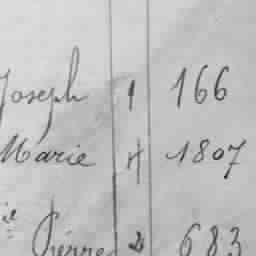 Joseph 1 166
Marie 4 1807
Pierre 2 683